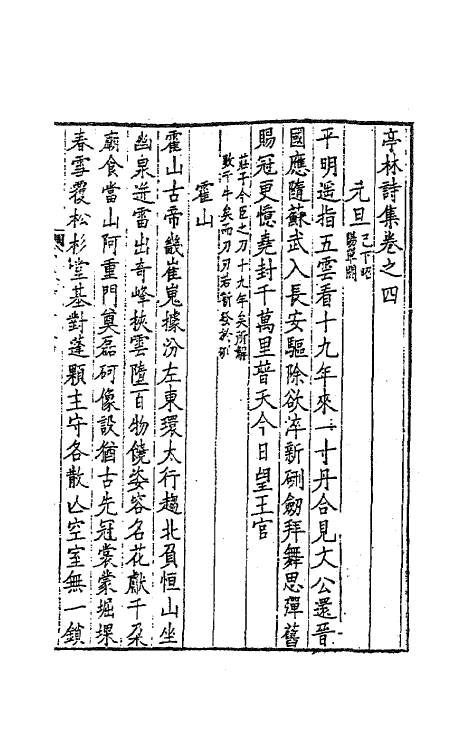 亭林詩集卷之四
元旦 已下昭
陽單閼
平明遥指五雲看十九年來一寸丹合見文公還晉
國應隨蘇武入長安驅除欲淬新硎劒拜舞思彈舊
賜冠更憶堯封千萬里普天今日望王官
莊子今臣之刀十九年矣所解
數千牛矣而刀刃若新發於硎
霍山
霍山古帝畿崔嵬據汾左東環太行趨北負恒山坐
幽泉迸雷出奇峰挾雲墮百物饒姿容名花獻千朶
廟食當山阿重門奠磊砢像設猶古先冠裳蒙堀堁
春雪覆松杉堂基對蓬顆主守各散亾空室無一鎖